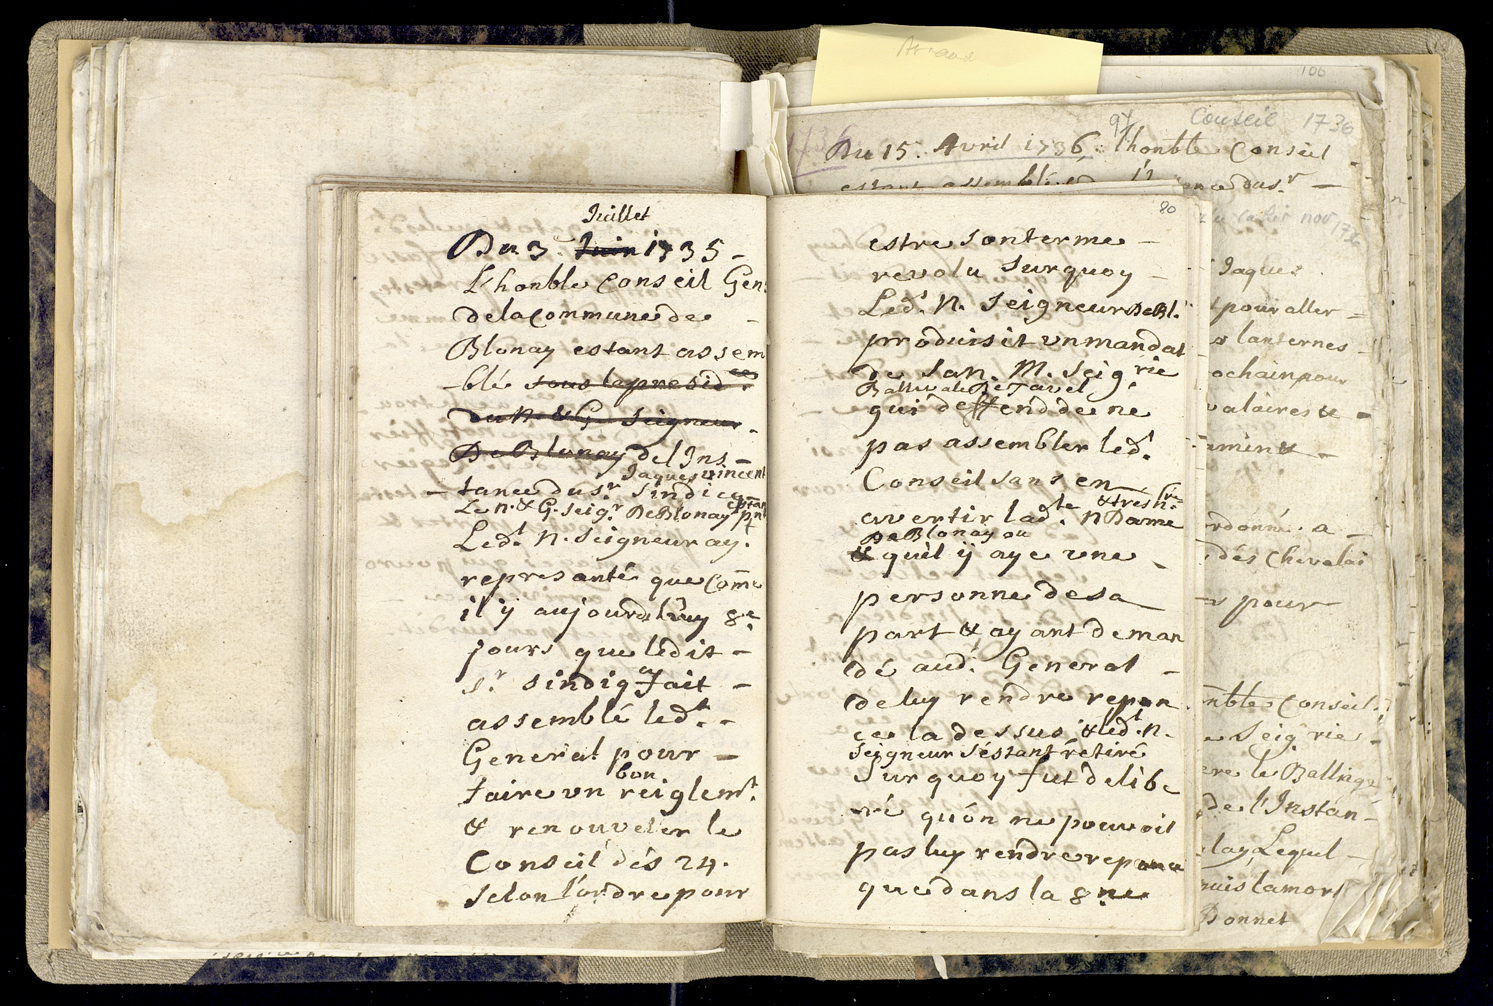 Juillet
Du 3. Juin 1735 -
L'honble Conseil Gen.
de la Commune de -
Blonay estant assem
-blé sous la presid.ce
du N. & G. Seigneur -
De Blonay de l'Ins-
Jaques vincent
-tance du sr. Sindicq
Le N. & G. Seigr. De Blonay
Ledt. N. Seigneur ay.t
represanté que Come
il ÿ aujourdhuy 8.e
jours que ledit -
sr. sindiq a fait -
assemblé ledt. -
General pour -
bon
faire un reiglemt.
& renouveler le
Conseil dés 24.
Selon l'ordre pour
80
estre son terme -
revolu Surquoy -
Ledt. N. Seigneur De Bl.
produisit un mandat
de San. M. Seigrie
Ballivale De Tavel
qui deffend de ne
pas assembler ledt.
Conseil sans en
& tres h.
avertir lad.te N Dame
De Blonay ou
& quèl ÿ aye une -
personne de sa
part & ayant deman
dé aud.t General -
de luy rendre repon
ce la dessus, & ledt. N.
Seigneur s'éstant rétiré
Surquoy fut delibe
ré qu'on ne pouvoit
pas luy rendre reponce
que dans la 8.ne
106
97 Conseil 1736
Du 15. Avril 1736. l'honble Conseil
estant assemblé
Jaques
pour aller -
lanternes -
prochain pour
valaires & -
ordonné. a -
dés Chevalai
pour
honble Conseil.
Seigrie -
de l'Instan-
Lequel -
puis la mort
Bonnet